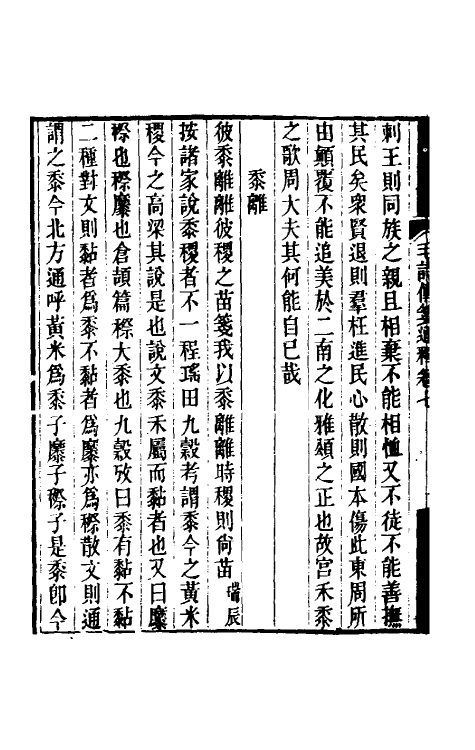 毛詩傳箋通釋卷七
刺王則同族之親且相棄不能相恤又不徒不能善撫
其民矣衆賢退則羣枉進民心散則國本傷此東周所
由顛覆不能追美於二南之化雅頌之正也故宫禾黍
之歌周大夫其何能自已哉
黍離
彼黍離離彼稷之苗箋我以黍離離時稷則尙苗瑞辰
按諸家說黍稷者不一程瑤田九穀考謂黍今之黃米
稷今之高梁其說是也說文黍禾屬而黏者也又曰䵚
穄也穄䵚也倉頡篇穄大黍也九穀攷曰黍有黏不黏
二種對文則黏者爲黍不黏者爲䵚亦爲穄散文則通
謂之黍今北方通呼黃米爲黍子䵚子穄子是黍卽今